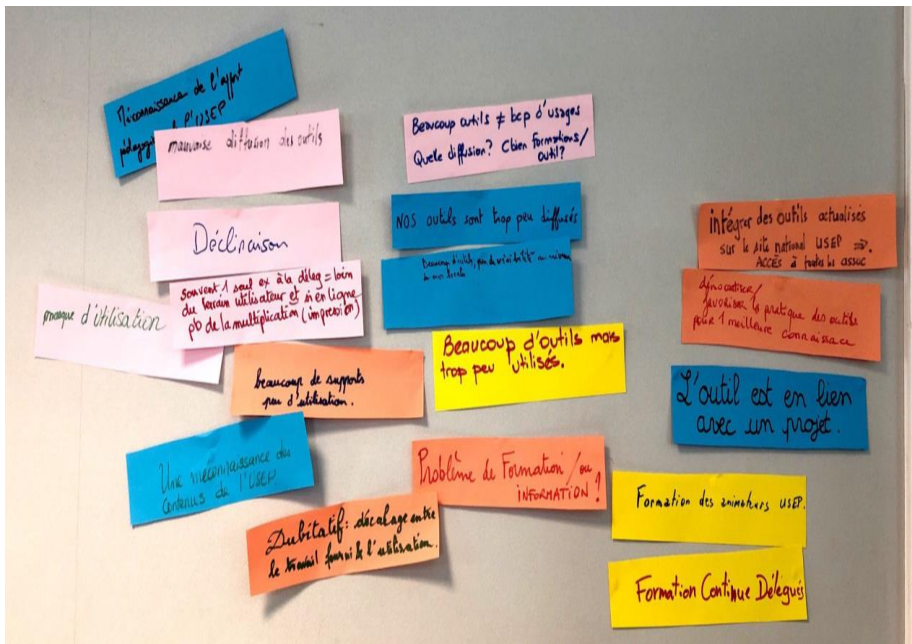 Méconnaissance de l'apport
pédagogique de l'USEP
mauvaise diffusion des outils
Déclinaison
souvent 1 seul ex à la délég = loin
du terrain utilisateur et si en ligne
pb de la multiplication (impression)
manque d'utilisation
beaucoup de supports
peu d'utilisation.
Une méconnaissance des
contenus de l'USEP
Dubitatif : décalage entre
le travail fourni & l'utilisation.
Beaucoup outils ≠ bcp d'usages
Quelle diffusion? Cbien formations/
outil?
NOS outils sont trop peu diffusés
Beaucoup d'outils, peu de
Beaucoup d'outils mais
trop peu utilisés.
Problème de Formation /ou
INFORMATION !
intégrer des outils actualisés
sur le site national USEP ⇒.
ACCÈS à toutes les assoc
démocratiser/
favoriser la pratique des outils
pour 1 meilleure connaissance
L'outil est en lien
avec un projet.
Formation des animateurs USEP.
Formation Continue Délégués